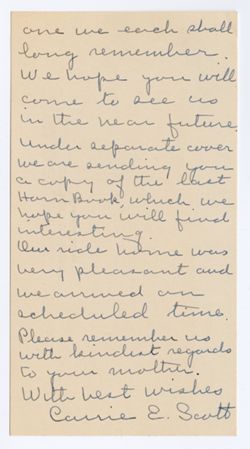 one we each shall
long remember.
We hope you will
come to see us
in the near future.
Under separate cover
we are sending you
a copy of the last
Horn Book, which we
hope you will find
interesting.
Our ride home was
very pleasant and
we arrived on
scheduled time.
Please remember us
with kindest regards
to your mother.
With best wishes
Carrie E. Scott